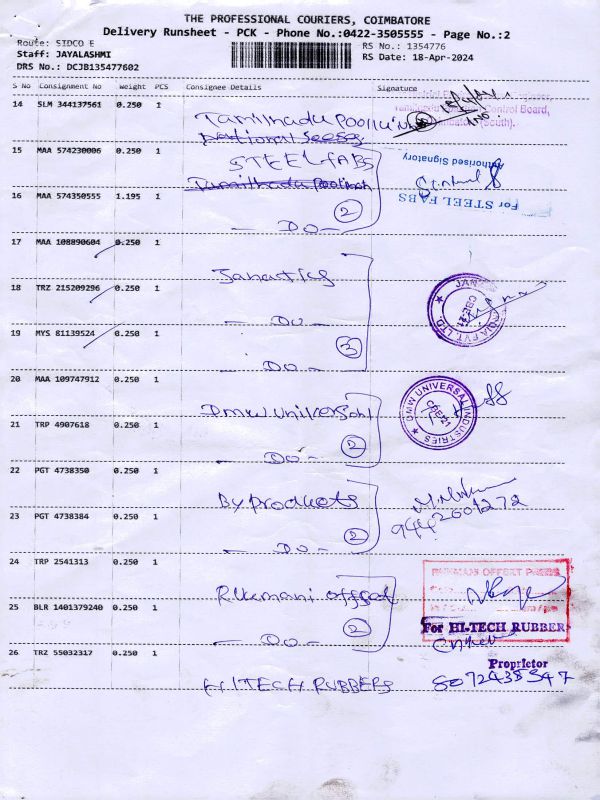 THE PROFESSIONAL COURIERS, COIMBATORE
Delivery Runsheet - PCK - Phone No.:0422-3505555 - Page No.:2
Route: SIDCO E
Staff: JAYALASHMI
DRS No.: DCJB135477602
RS No.: 1354776
RS Date: 18-Apr-2024
S No Consignment No Weight PCS Consignee Details Signature
14 SLM 344137561 0.250 1
Control Board,
(South).
15 MAA 574230006 0.250 1
STEEL FABS
Authorised Signatory
16 MAA 574350555 1.195 1
2
For STEEL FABS
- DO -
17 MAA 108890604 0.250 1
18 TRZ 215209296 0.250 1
Janatics
- DO -
19 MYS 81139524 0.250 1
3
- DO -
20 MAA 109747912 0.250 1
OMW UNIVERSAL INDUSTRIES
CBE-21
21 TRP 4907618 0.250 1
2
- DO -
22 PGT 4738350 0.250 1
By products
9442601272
23 PGT 4738384 0.250 1
2
- DO -
24 TRP 2541313 0.250 1
RUKMANI OFFSET PRESS
Rukmani offset
25 BLR 1401379240 0.250 1
2
For HI-TECH RUBBER
- DO -
26 TRZ 55032317 0.250 1
Proprietor
HITECH RUBBERS